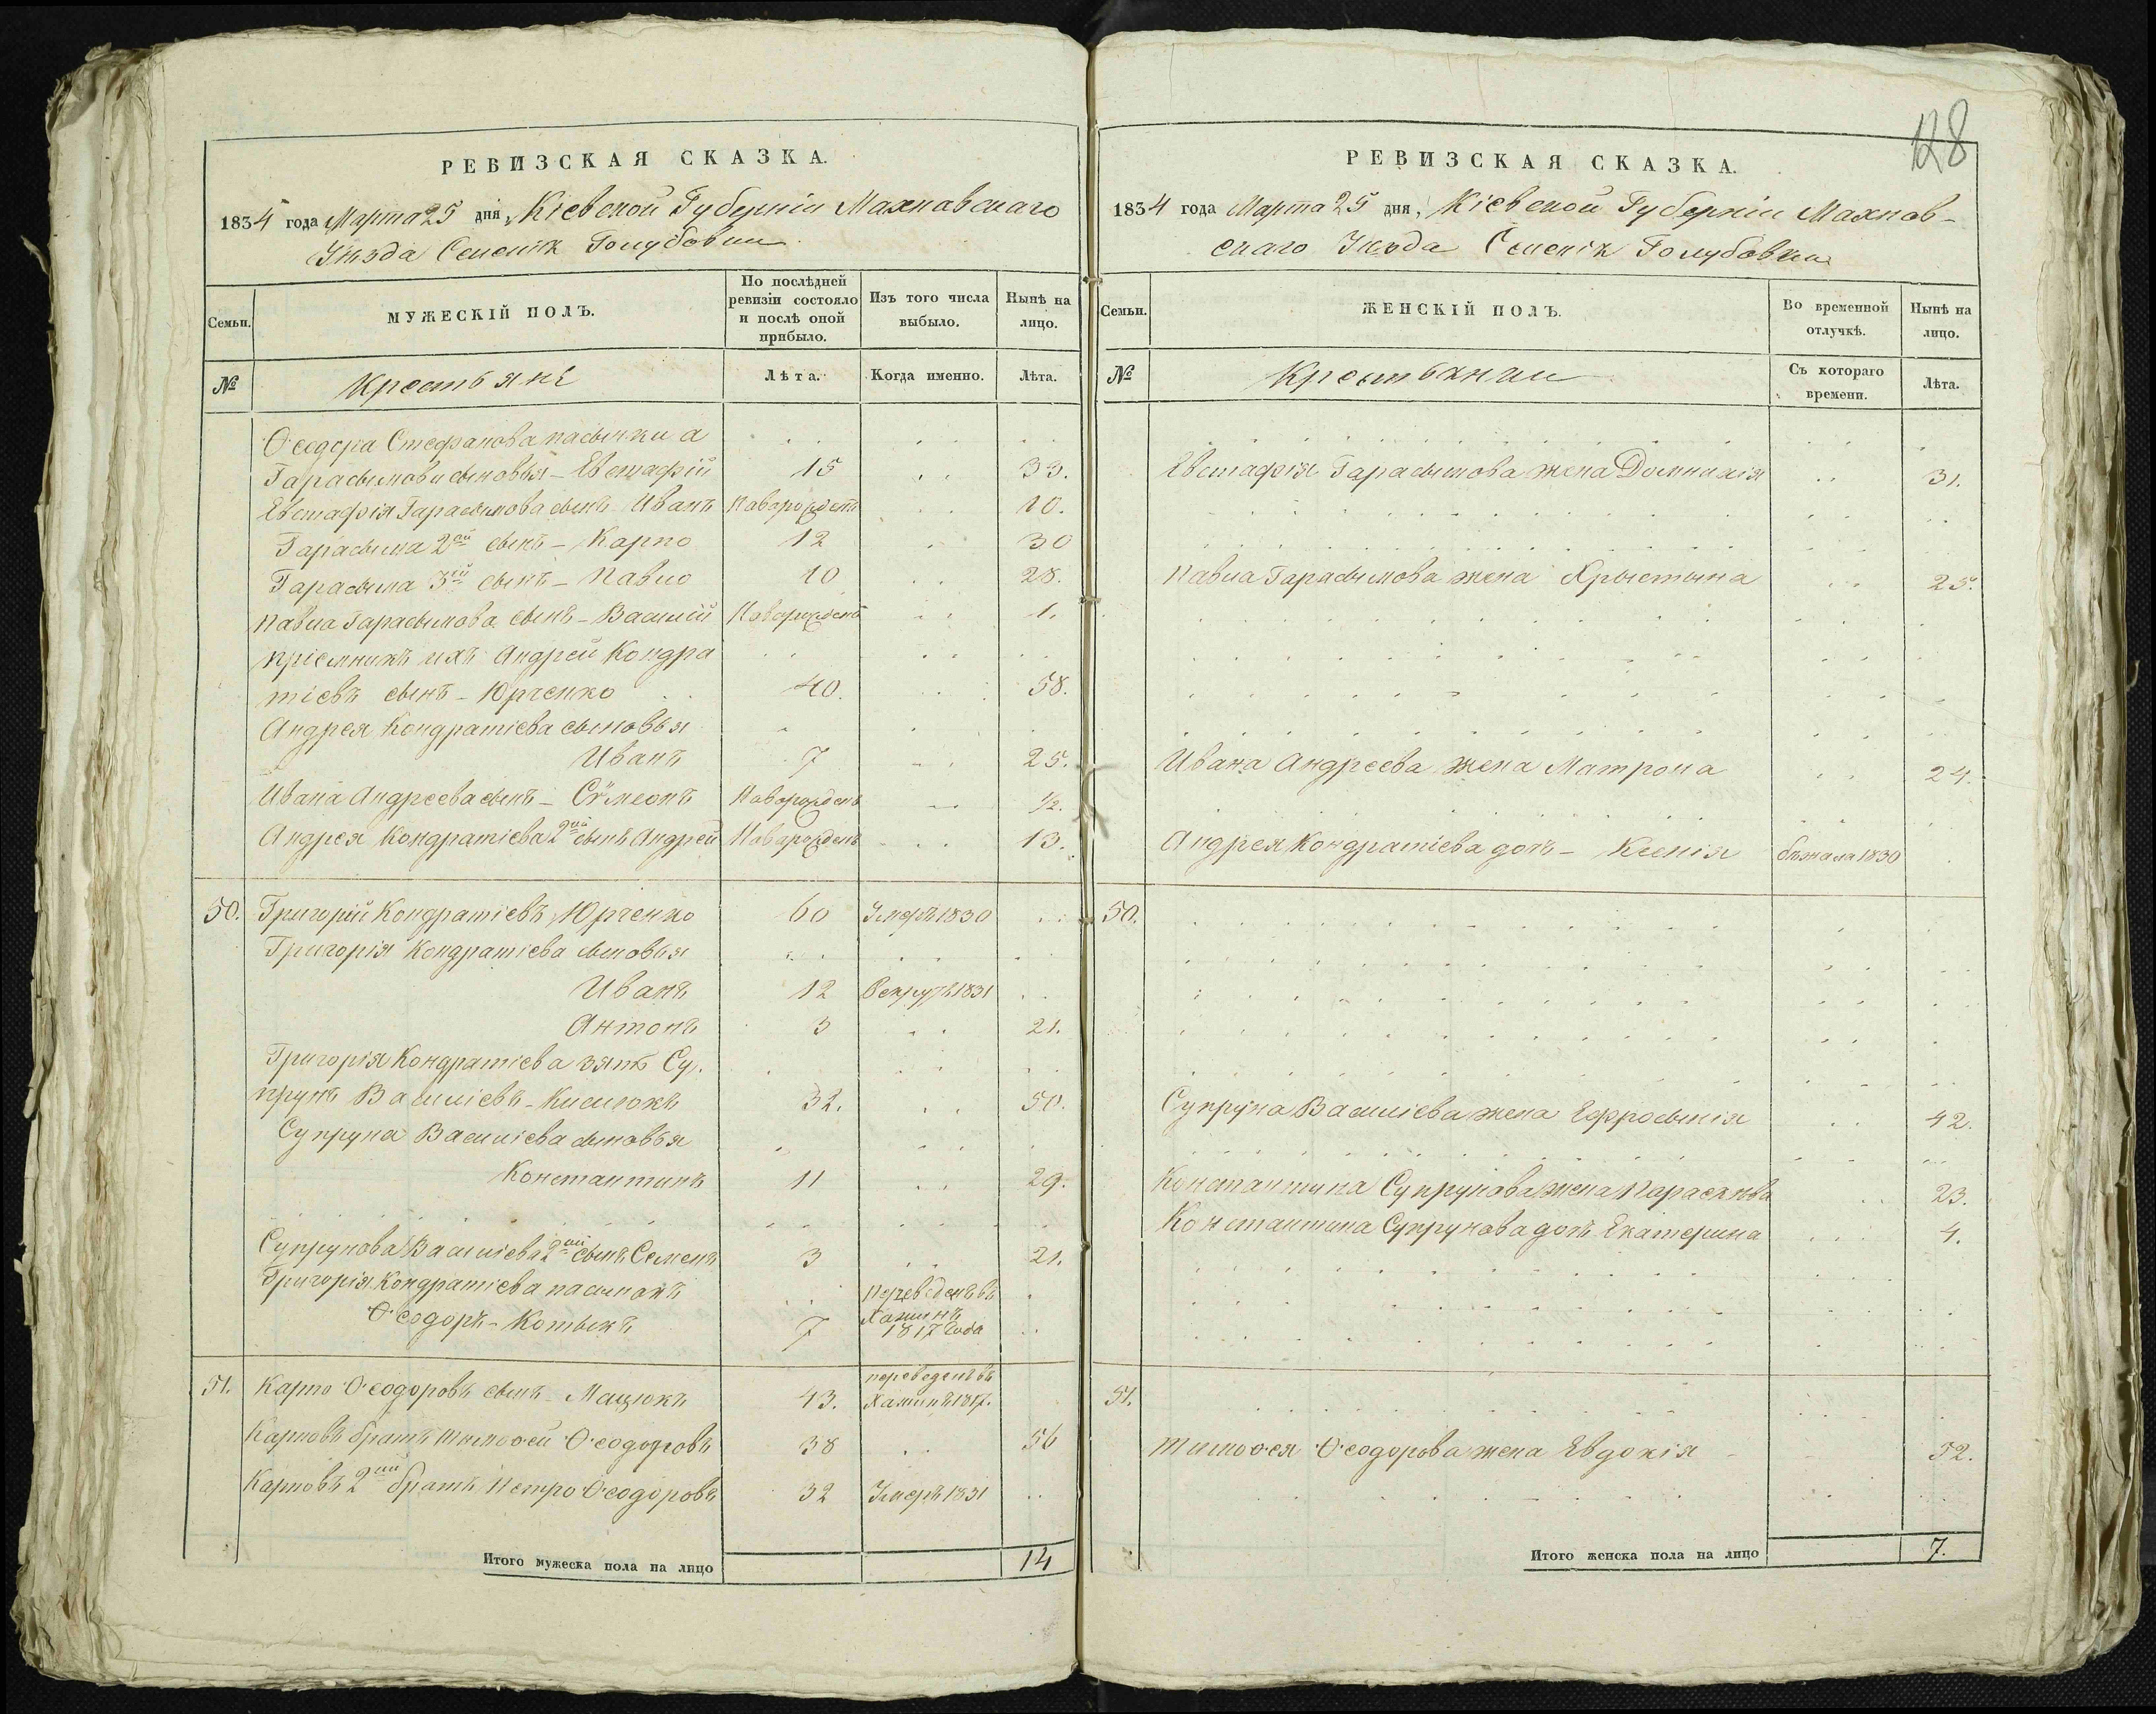 РЕВИЗСКАЯ СКАЗКА.
1834 года Марта 25 дня, Кіевской Губерніи Махновскаго
Уѣзда Селеніѧ Голубовки
Семьи.
МУЖЕСКІЙ ПОЛЪ.
По послѣдней ревизіи состояло и послѣ оной прибыло.
Изъ того числа выбыло.
Нынѣ на лицо.
№
Крестьяне
Лѣта.
Когда именно.
Лѣта.
Ѳеодора Стефанова пасынки а
Гарасымови сыновья - Евстафій 15 33.
Евстафія Гарасымова сынъ Иванъ Новорожденъ 10.
Гарасыма 2ой сынъ - Карпо 12 30
Гарасыма 3ій сынъ - Павло 10 28.
Павла Гарасымова сынъ - Василій Новорожденъ 1.
Пріемникъ ихъ Андрей Кондра
тіевъ сынъ - Юрченко 40. 58.
Андрея Кондратіева сыновья
Иванъ 7 25.
Ивана Андреева сынъ - Сѵмеонъ Новорожденъ ½.
Андрея Кондратіева 2ий сынъ Андрей Новорожденъ 13.
50. Григорій Кондратіевъ Юрченко 60 Умеръ 1830
Григорія Кондратіева сыновья
Иванъ 12 Рекрутъ 1831
Антонъ 3 21.
Григорія Кондратіева зять Су-
прунъ Василіевъ - Кисилюкъ 32. 50.
Супруна Василіева сыновья
Константинъ 11 29.
Супрунова Василіева 2ий сынъ Семенъ 3 21.
Григорія Кондратіева пасынокъ переведенъ въ
Ѳеодоръ - Котыкъ 7 Хажинъ 1817 года
51. Карпо Ѳеодоровъ сынъ - Мацюкъ 43. переведенъ въ Хажинъ 1817.
Карповъ братъ Тымоѳей Ѳеодоровъ 38 56
Карповъ 2ий братъ Петро Ѳеодоровъ 32 Умеръ 1831
Итого мужеска пола на лицо 14
128
РЕВИЗСКАЯ СКАЗКА.
1834 года Марта 25 дня, Кіевской Губерніи Махнов-
скаго Уѣзда Селеніѧ Голубовки
Семьи.
ЖЕНСКІЙ ПОЛЪ.
Во временной отлучкѣ.
Нынѣ на лицо.
№
Крестьянки
Съ котораго времени.
Лѣта.
Евстафія Гарасымова жена Домникія 31.
Павла Гарасымова жена Хрыстына 25.
Ивана Андреева жена Матрона 24.
Андрея Кондратіева дочь - Ксенія бѣжала 1830
50.
Супруна Василіева жена Ефросынія 42.
Константина Супрунова жена Параскѣва 23.
Константина Супрунова дочь Екатерина 4.
51.
Тимоѳея Ѳеодорова жена Евдокія 52.
Итого женска пола на лицо 7.